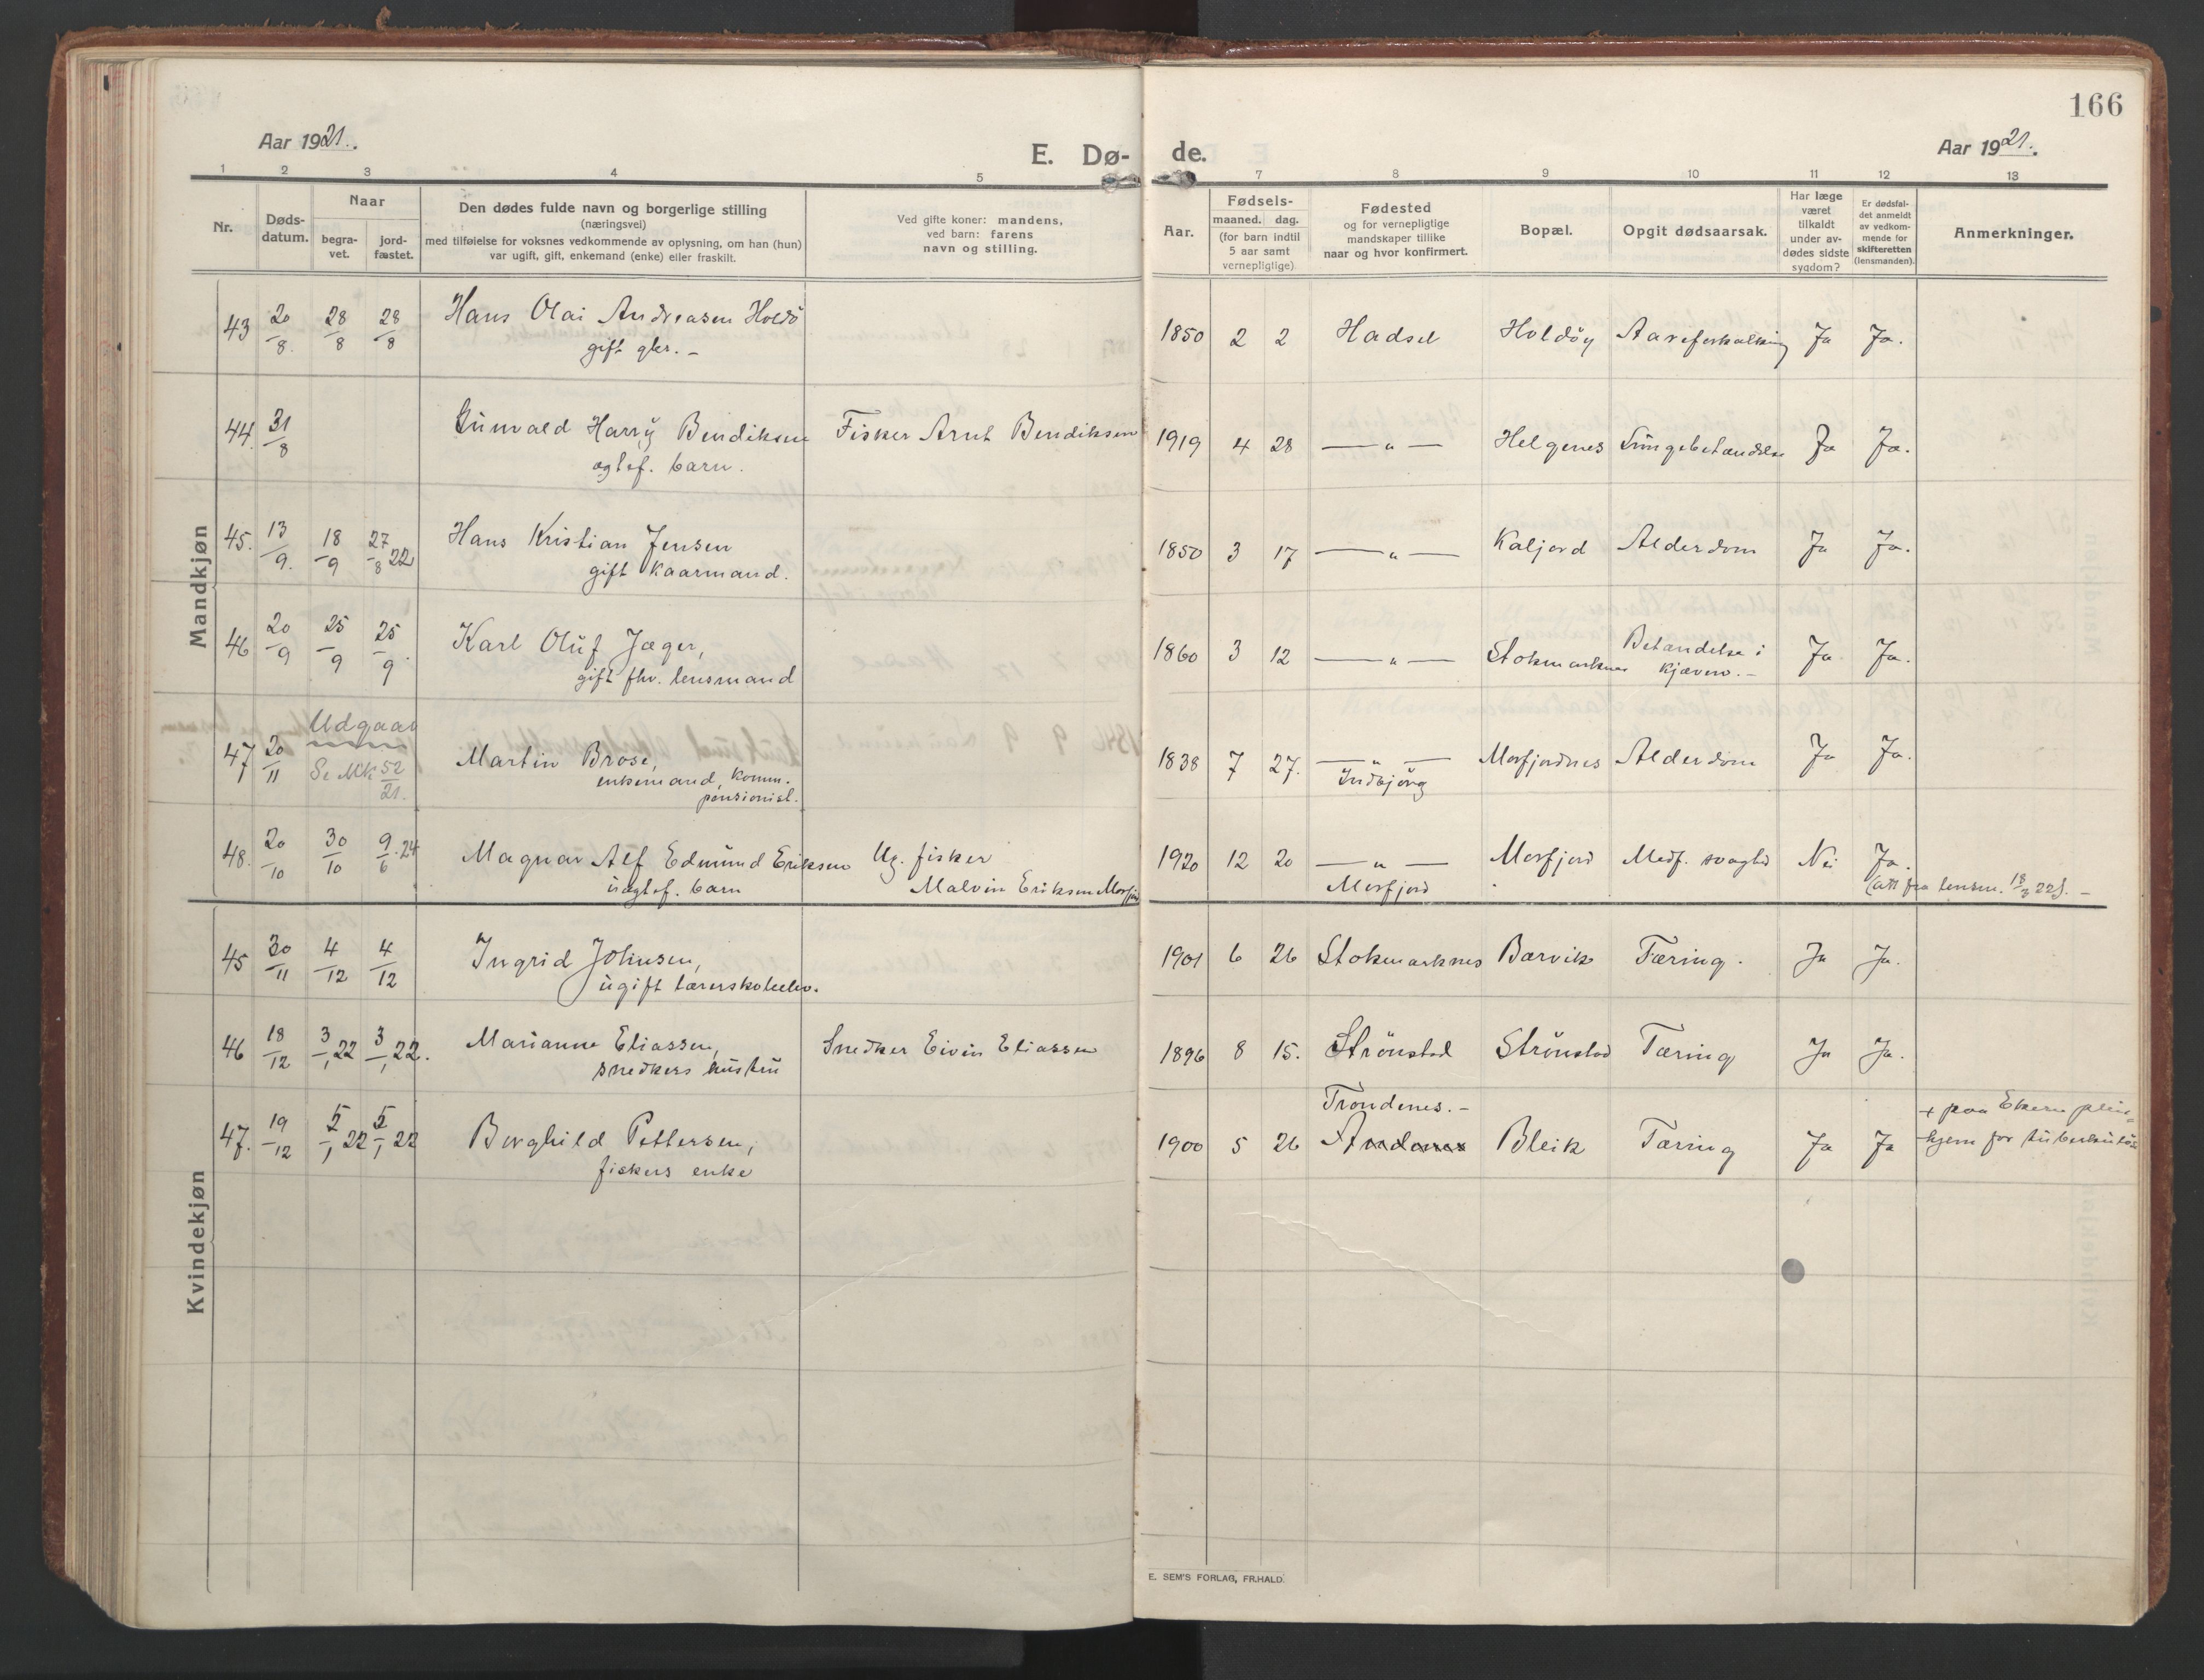 166
Aar 1921.
E. Dø- de.
Aar 1921.
1 2 3 4 5 7 8 9 10 11 12 13
Nr.
Døds-
datum.
Naar
begra-
vet.
jord-
fæstet.
Den dødes fulde navn og borgerlige stilling
(næringsvei)
med tilføielse for voksnes vedkommende av oplysning, om han (hun)
var ugift, gift, enkemand (enke) eller fraskilt.
Ved gifte koner: mandens,
ved barn: farens
navn og stilling.
Aar.
Fødsels-
maaned. dag.
(for barn indtil
5 aar samt
vernepligtige)
Fødested
og for vernepligtige
mandskaper tillike
naar og hvor konfirmert.
Bopæl.
Opgit dødsaarsak.
Har læge
været
tilkaldt
under av-
dødes sidste
sygdom?
Er dødsfal-
det anmeldt
av vedkom-
mende for
skifteretten
(lensmanden).
Anmerkninger.
Mandkjøn
43 20/8. 28/8 28/8 Hans Olai Andreasen Holdö 1850 2 2 Hadsel Holdöy Aareforkalkning Ja Ja.
gift gbr. –
44. 31/8 Gunvald Harry Bendiksen Fisker Arnt Bendiksen 1919 4 28 — " — Helgenes Lungebetændelse Ja Ja.
ægtef. barn.
45. 13/9. 18/9 27/8 22 Hans Kristian Jensen 1850 3 17 — " — Kaljord Alderdom Ja Ja.
gift kaarmand.
46 20/9 25/9 25/9. Karl Oluf Jæger, 1860 3 12 — " — Stokmarknes Betændelse i Ja Ja.
gift fhv. lensmand kjæven. –
Udgaar
47 20/11 Se Mk 52/21. Martin Brose, 1838 7 27. — " — Morfjordnes Alderdom Ja Ja.
enkemand, komm. Indbjörg
pensionist.
48. 20/10 30/10 9/6.24 Magnar Alf Edmund Eriksen Ug. fisker 1920 12 20 — " — Morfjord Medf. svaghed Nei Ja.
uægtef. barn Malvin Eriksen Morfjord Morfjord (att fra lensm. 18/3 22). –
Kvindekjøn
45 30/11 4/12 4/12 Ingrid Johnsen, 1901 6 26 Stokmarknes Barvik Tæring. Ja Ja.
ugift lærerskoleelev.
46 18/12 3/1 22 3/1 22. Marianne Eliassen, Snedker Eivin Eliassen 1896 8 15. Strönstad Strönstad Tæring Ja Ja.
snedkers hustru
Tröndenes. –
47. 19/12 5/1 22 5/1 22 Berghild Pettersen, 1900 5 26 Andenes Bleik Tæring Ja Ja + paa Ekern pleie=
fiskers enke hjem for tuberkuløse
E. SEM'S FORLAG, FR.HALD.